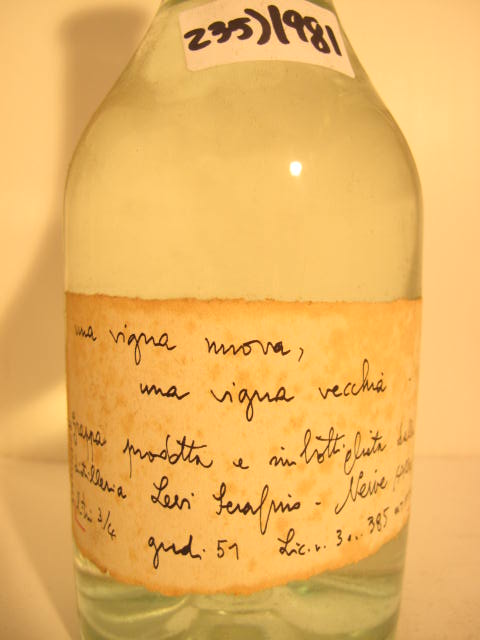 235) 1981
una vigna nuova,
una vigna vecchia
Grappa prodotta e imbottigliata dalla
distilleria Levi Serafino - Neive
litri 3/4
gradi 51 Lic. n. 3 385